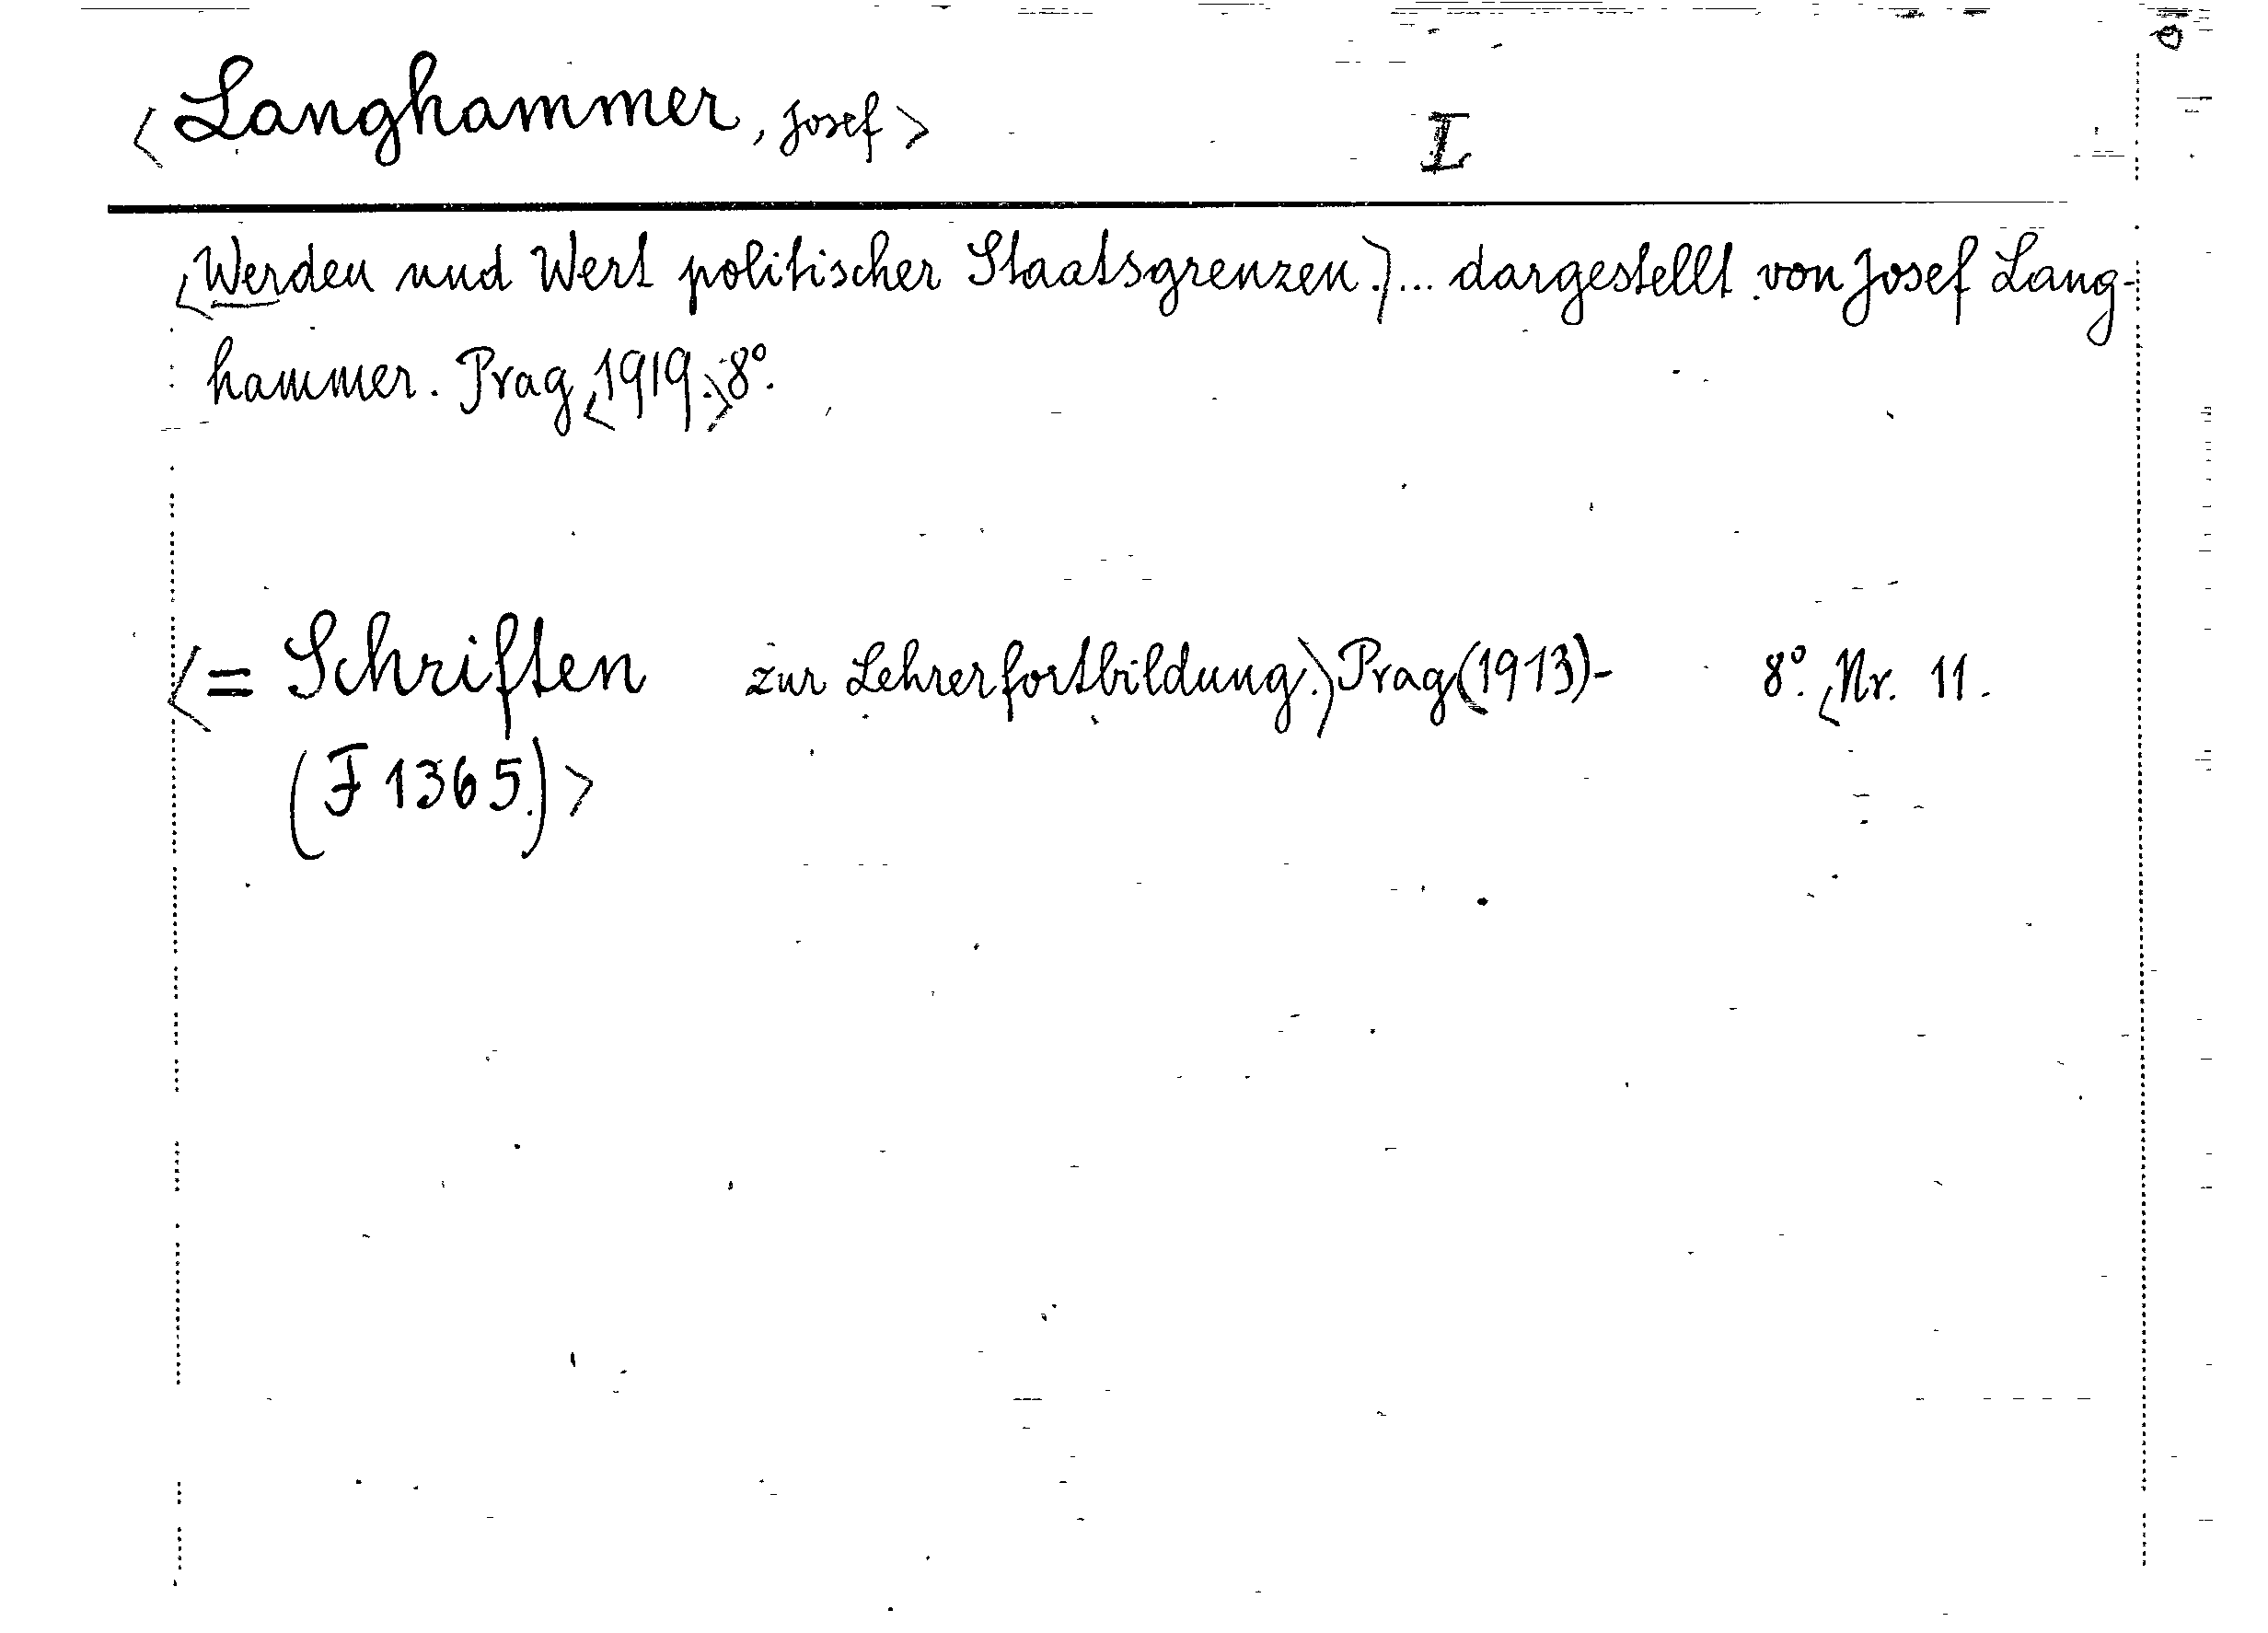 <Langhammer, Josef> I
<Werden und Wert politischer Staatsgrenzen.>... dargestellt von Josef Lang-
hammer. Prag <1919.> 8°.
<= Schriften zur Lehrerfortbildung.> Prag (1913)- 8°. <Nr. 11.
(F 1365.)>